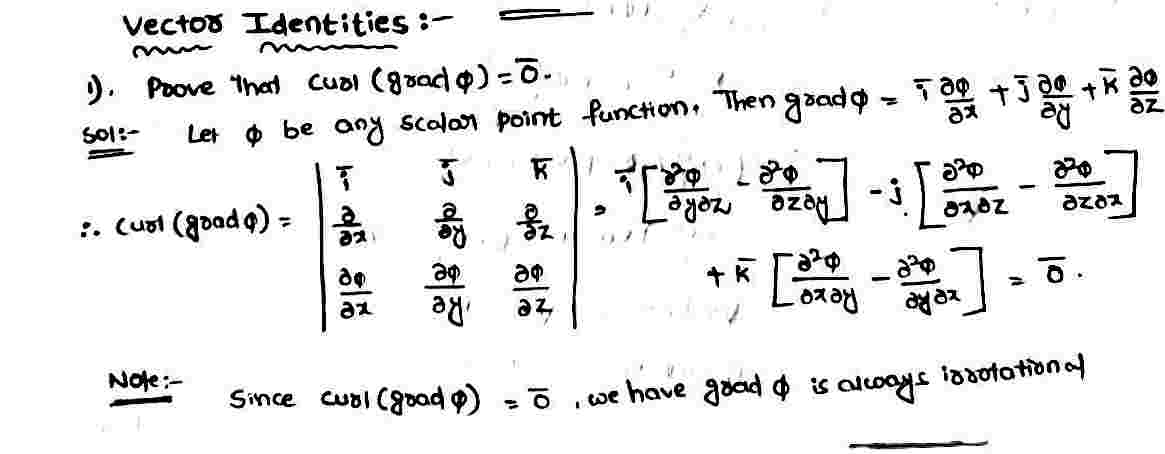 Vector Identities :-
1). Prove that curl (grad φ) = 0̅.
Sol:- Let φ be any scalar point function. Then grad φ = i̅ ∂φ/∂x + j̅ ∂φ/∂y + k̅ ∂φ/∂z
∴ curl (grad φ) = | i̅ j̅ k̅ | = i̅ [∂²φ/∂y∂z - ∂²φ/∂z∂y] - j̅ [∂²φ/∂x∂z - ∂²φ/∂z∂x]
| ∂/∂x ∂/∂y ∂/∂z |
| ∂φ/∂x ∂φ/∂y ∂φ/∂z | + k̅ [∂²φ/∂x∂y - ∂²φ/∂y∂x] = 0̅.
Note:- Since curl (grad φ) = 0̅, we have grad φ is always irrotational